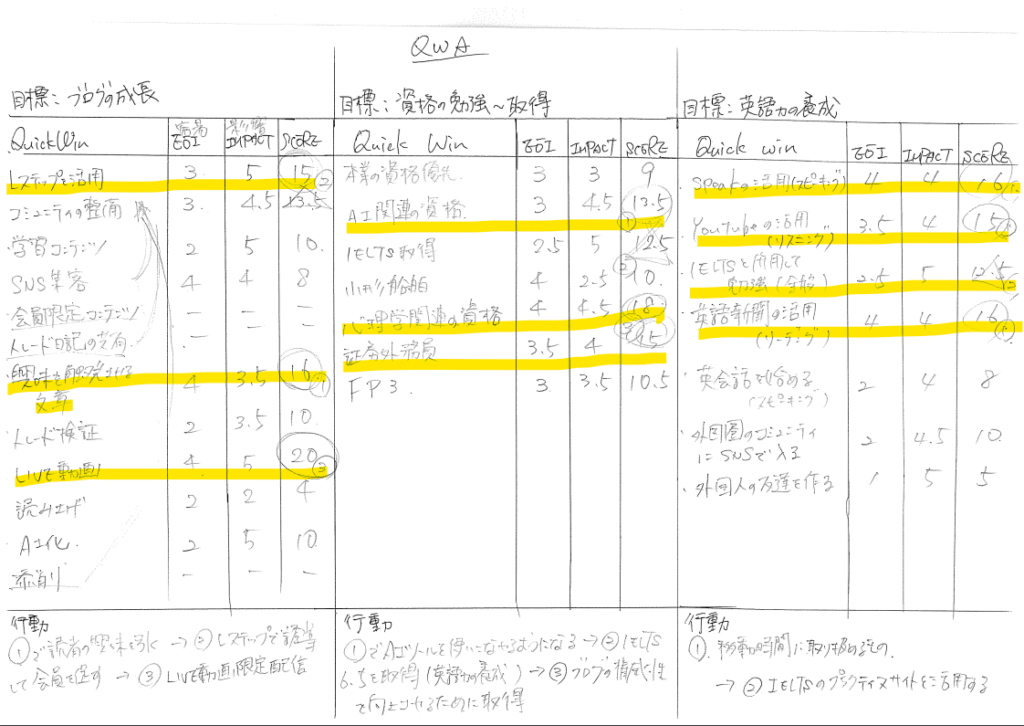 QWA
目標：ブログの成長
QuickWin EOI IMPACT SCORE
容易 影響
Lステップを活用 3 5 15 ②
コミュニティの整備 3. 4.5 13.5
・学習コンテンツ 2 5 10.
SNS集客 4 4 8
・会員限定コンテンツ - - -
トレード日記の共有. - - -
・興味を開発させる 4 3.5 16 ①
文章
・トレード検証 2 3.5 10
LIVE動画 4 5 20 ③
読み上げ 2 2 4
AI化. 2 5 10.
添削 - - -
行動
①で読者の興味を引く → ② Lステップで誘導
して会員を促す → ③ LIVE動画限定配信
目標：資格の勉強～取得
Quick Win EOI IMPACT SCORE
本業の資格優先. 3 3 9
AI関連の資格. 3 4.5 13.5 ①
IELTS取得 2.5 5 12.5 ②
小形船舶 4 2.5 10.
心理学関連の資格 4 4.5 18
証券外務員 3.5 4
FP3. 3 3.5 10.5
行動
①でAIツールを使いこなせるようになる → ② IELTS
6.5を取得(英語力の養成) → ③ ブログの権威性
を向上させるために取得
目標：英語力の養成
Quick win EOI IMPACT SCORE
・Speakの活用(スピキング) 4 4 16 ①.
YouTubeの活用 3.5 4 15
(リスニング)
・IELTSと併用して 2.5 5 12.5 ②
勉強(全般)
・英語新聞の活用 4 4 16 ①
(リーディング)
・英会話を始める 2 4 8
(スピキング)
・外国圏のコミュニティ 2 4.5 10.
にSNSで入る
・外国人の友達を作る 1 5 5
行動
①. 移動時間に取り組めるもの.
→ ② IELTSのプラクティスサイトを活用する